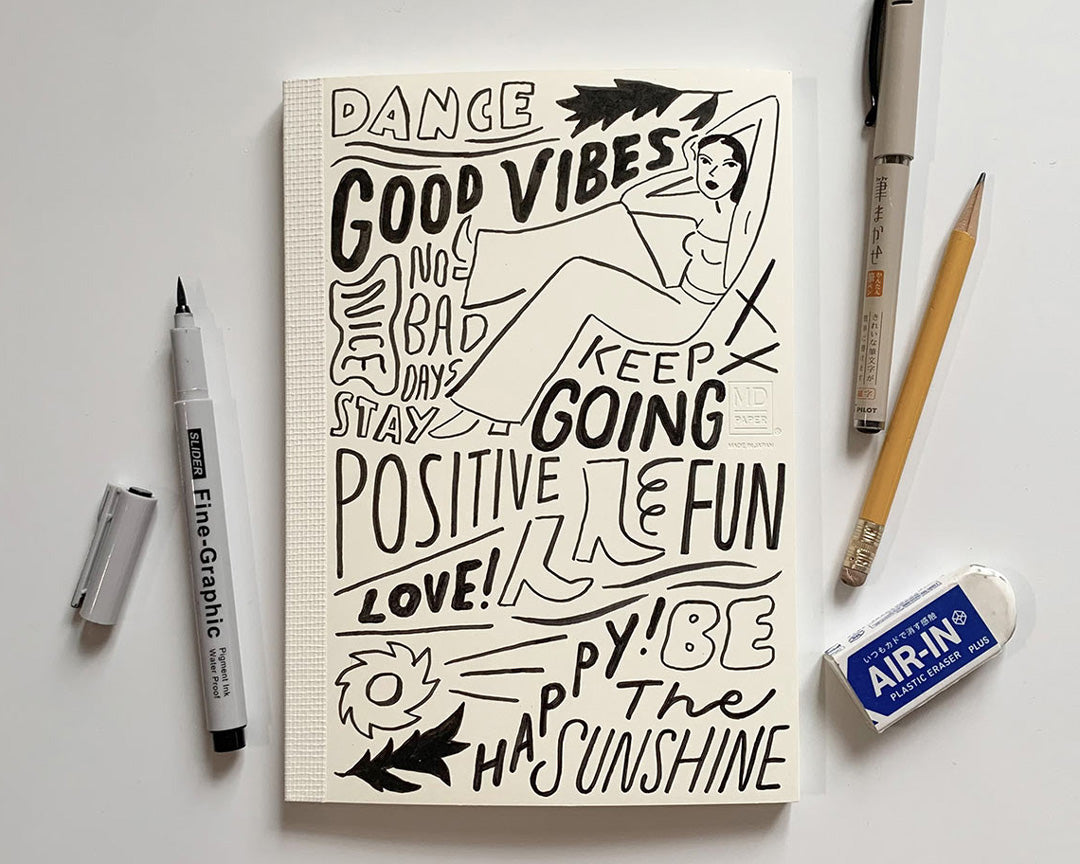 DANCE
GOOD VIBES
NO
BAD
DAYS
NICE
KEEP
GOING
MD
PAPER
MADE IN JAPAN
STAY
POSITIVE
FUN
LOVE!
HAPPY!
BE
The
SUNSHINE
SLIDER Fine-Graphic
Pigment Ink
Water Proof
筆まかせ
かんたん
筆ペン
きれいな筆文字が
簡単に書けます
細字
PILOT
いつもカドで消す感触
AIR-IN
PLASTIC ERASER PLUS